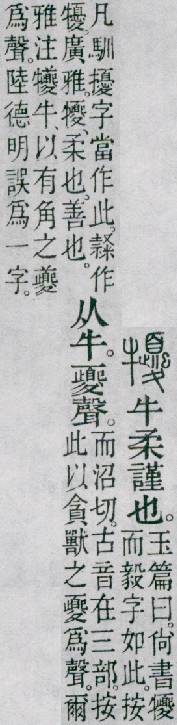 犪牛柔謹也。
玉篇曰。尚書犪
而毅字如此。按
凡馴擾字當作此。隸作
犪。廣雅。犪、柔也。善也。
从牛。夒聲。
而沼切。古音在三部。按
此以貪獸之夒爲聲。爾
雅注犪牛、以有角之夔
爲聲。陸德明誤爲一字。